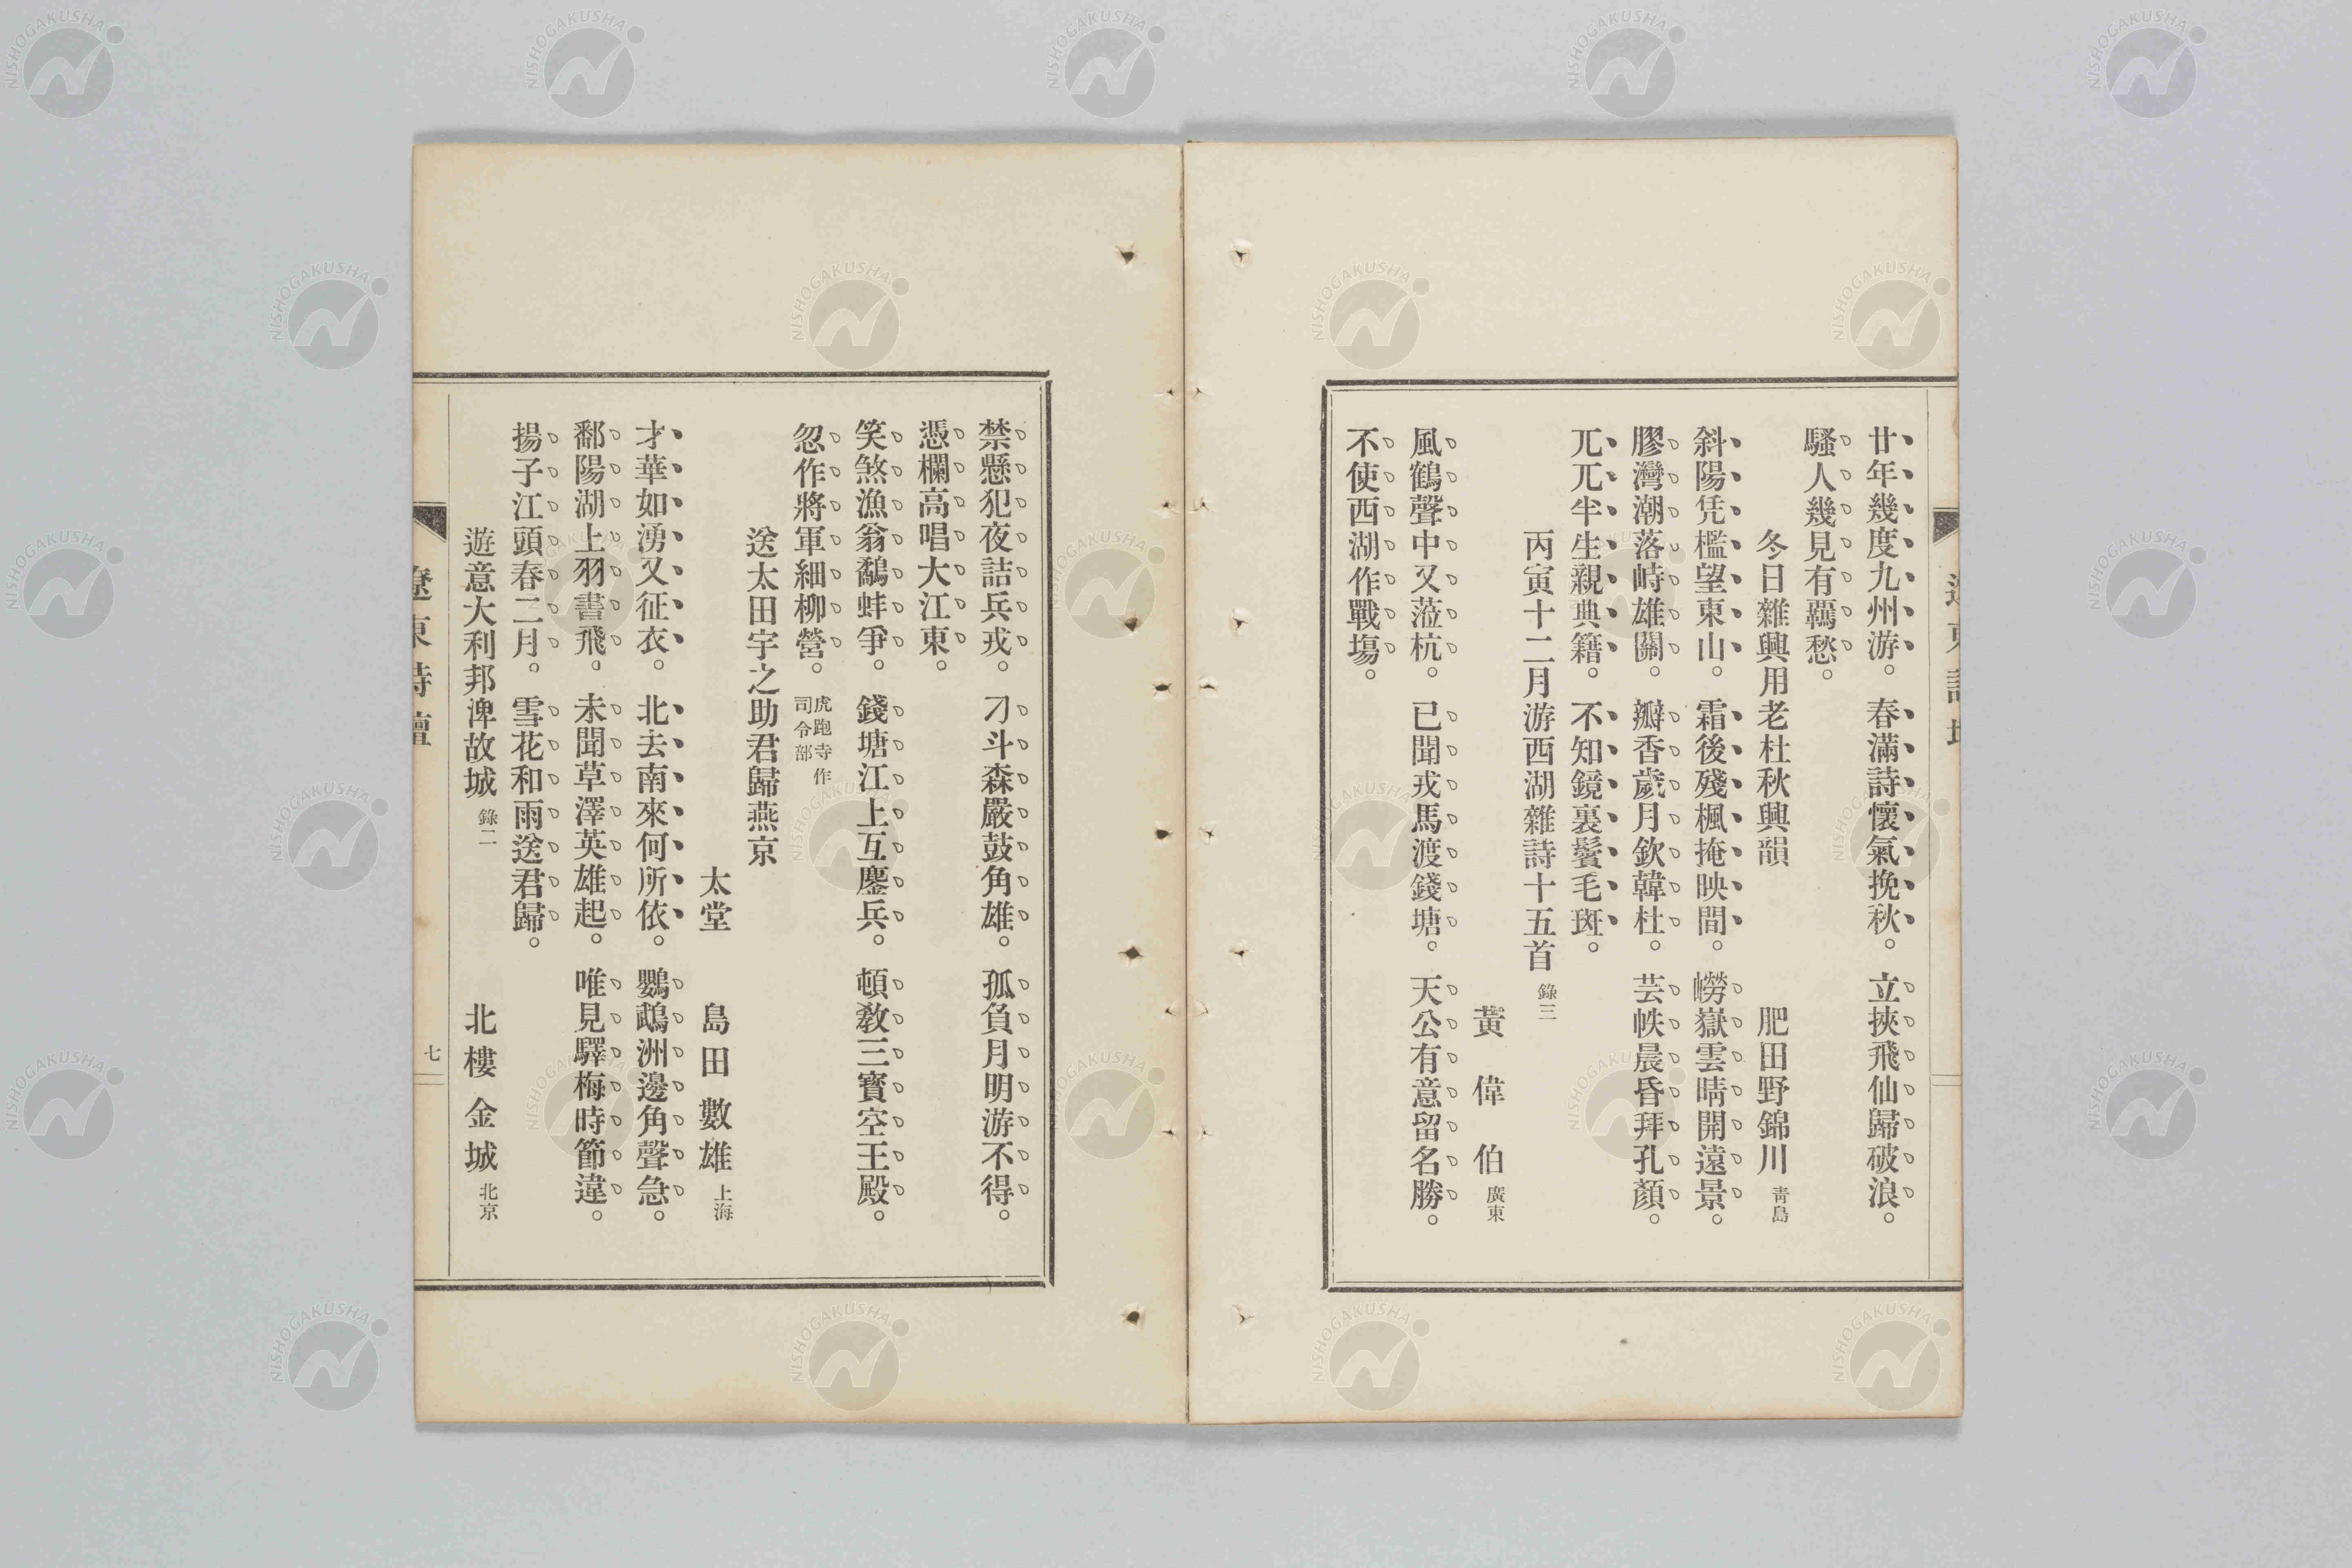 廿年幾度九州游。春滿詩懷氣挽秋。立挾飛仙歸破浪。
騷人幾見有羈愁。
冬日雜興用老杜秋興韻 肥田野錦川 靑島
斜陽凭檻望東山。霜後殘楓掩映間。嶗嶽雲晴開遠景。
膠灣潮落峙雄關。瓣香歲月欽韓杜。芸帙晨昏拜孔顏。
兀兀半生親典籍。不知鏡裏鬢毛斑。
丙寅十二月游西湖雜詩十五首 錄三
黃偉伯 廣東
風鶴聲中又蒞杭。已聞戎馬渡錢塘。天公有意留名勝。
不使西湖作戰場。
禁懸犯夜詰兵戎。刁斗森嚴鼓角雄。孤負月明游不得。
憑欄高唱大江東。
笑煞漁翁鷸蚌爭。錢塘江上互鏖兵。頓敎三寶空王殿。
忽作將軍細柳營。虎跑寺作司令部
送太田宇之助君歸燕京
太堂 島田數雄 上海
才華如湧又征衣。北去南來何所依。鸚鵡洲邊角聲急。
鄱陽湖上羽書飛。未聞草澤英雄起。唯見驛梅時節違。
揚子江頭春二月。雪花和雨送君歸。
遊意大利邦渒故城 錄二 北樓金城 北京
遼東詩壇
七